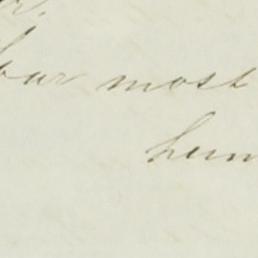 r.
bur most
hum